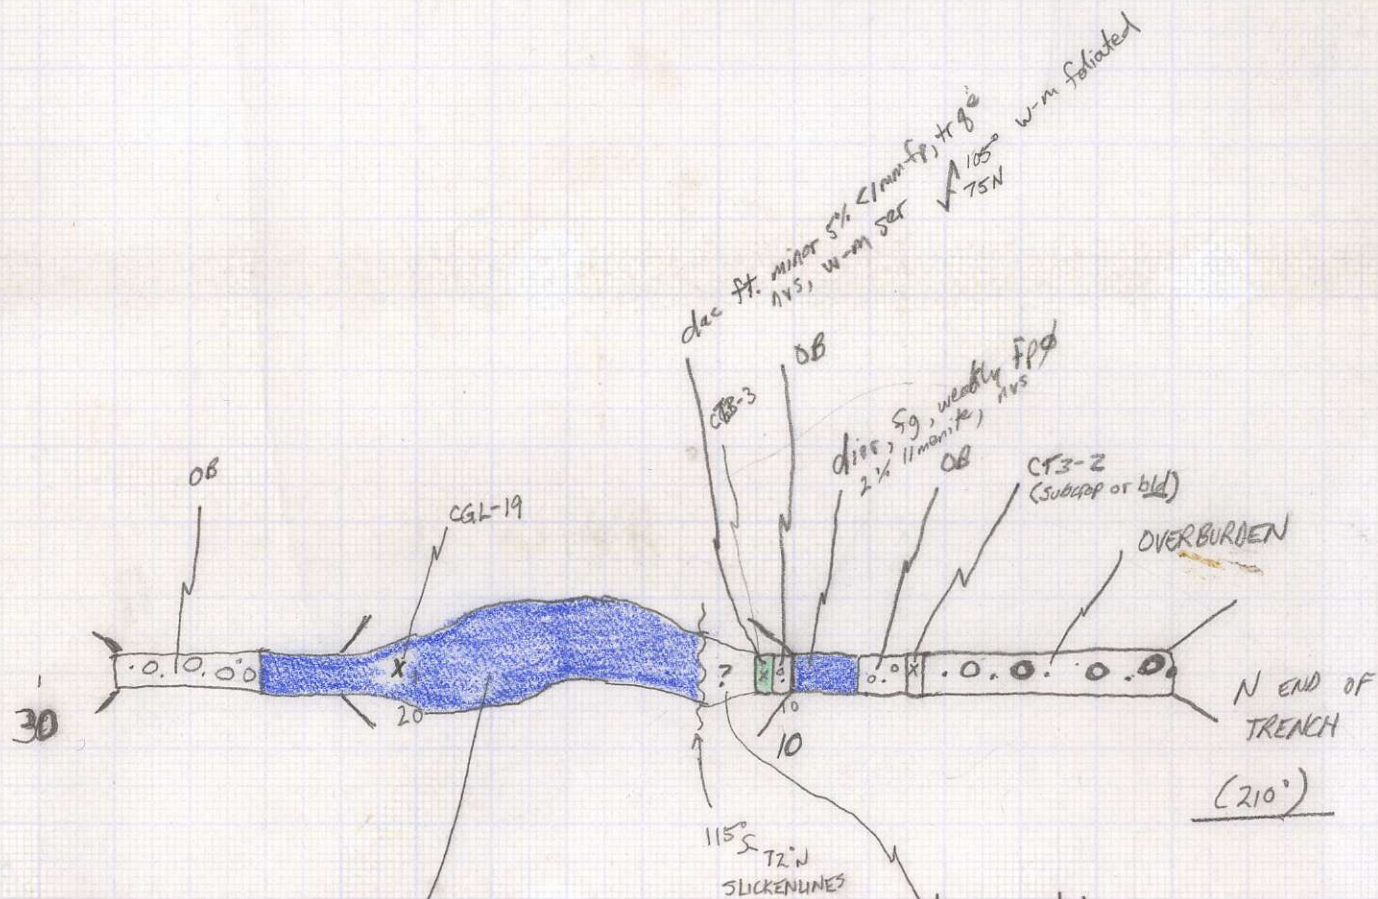 dac ft. minor 5% <1mm fp, tr qe
nvs, w-m ser
105°
75N
w-m foliated
OB
dior, fg, weakly FpØ
2% ilmenite, nvs
OB
CT3-2
(subcrop or bld)
OVERBURDEN
OB
CGL-19
X
?
X
X
30
20
10
N END OF
TRENCH
(210°)
115°
72°N
SLICKENLINES